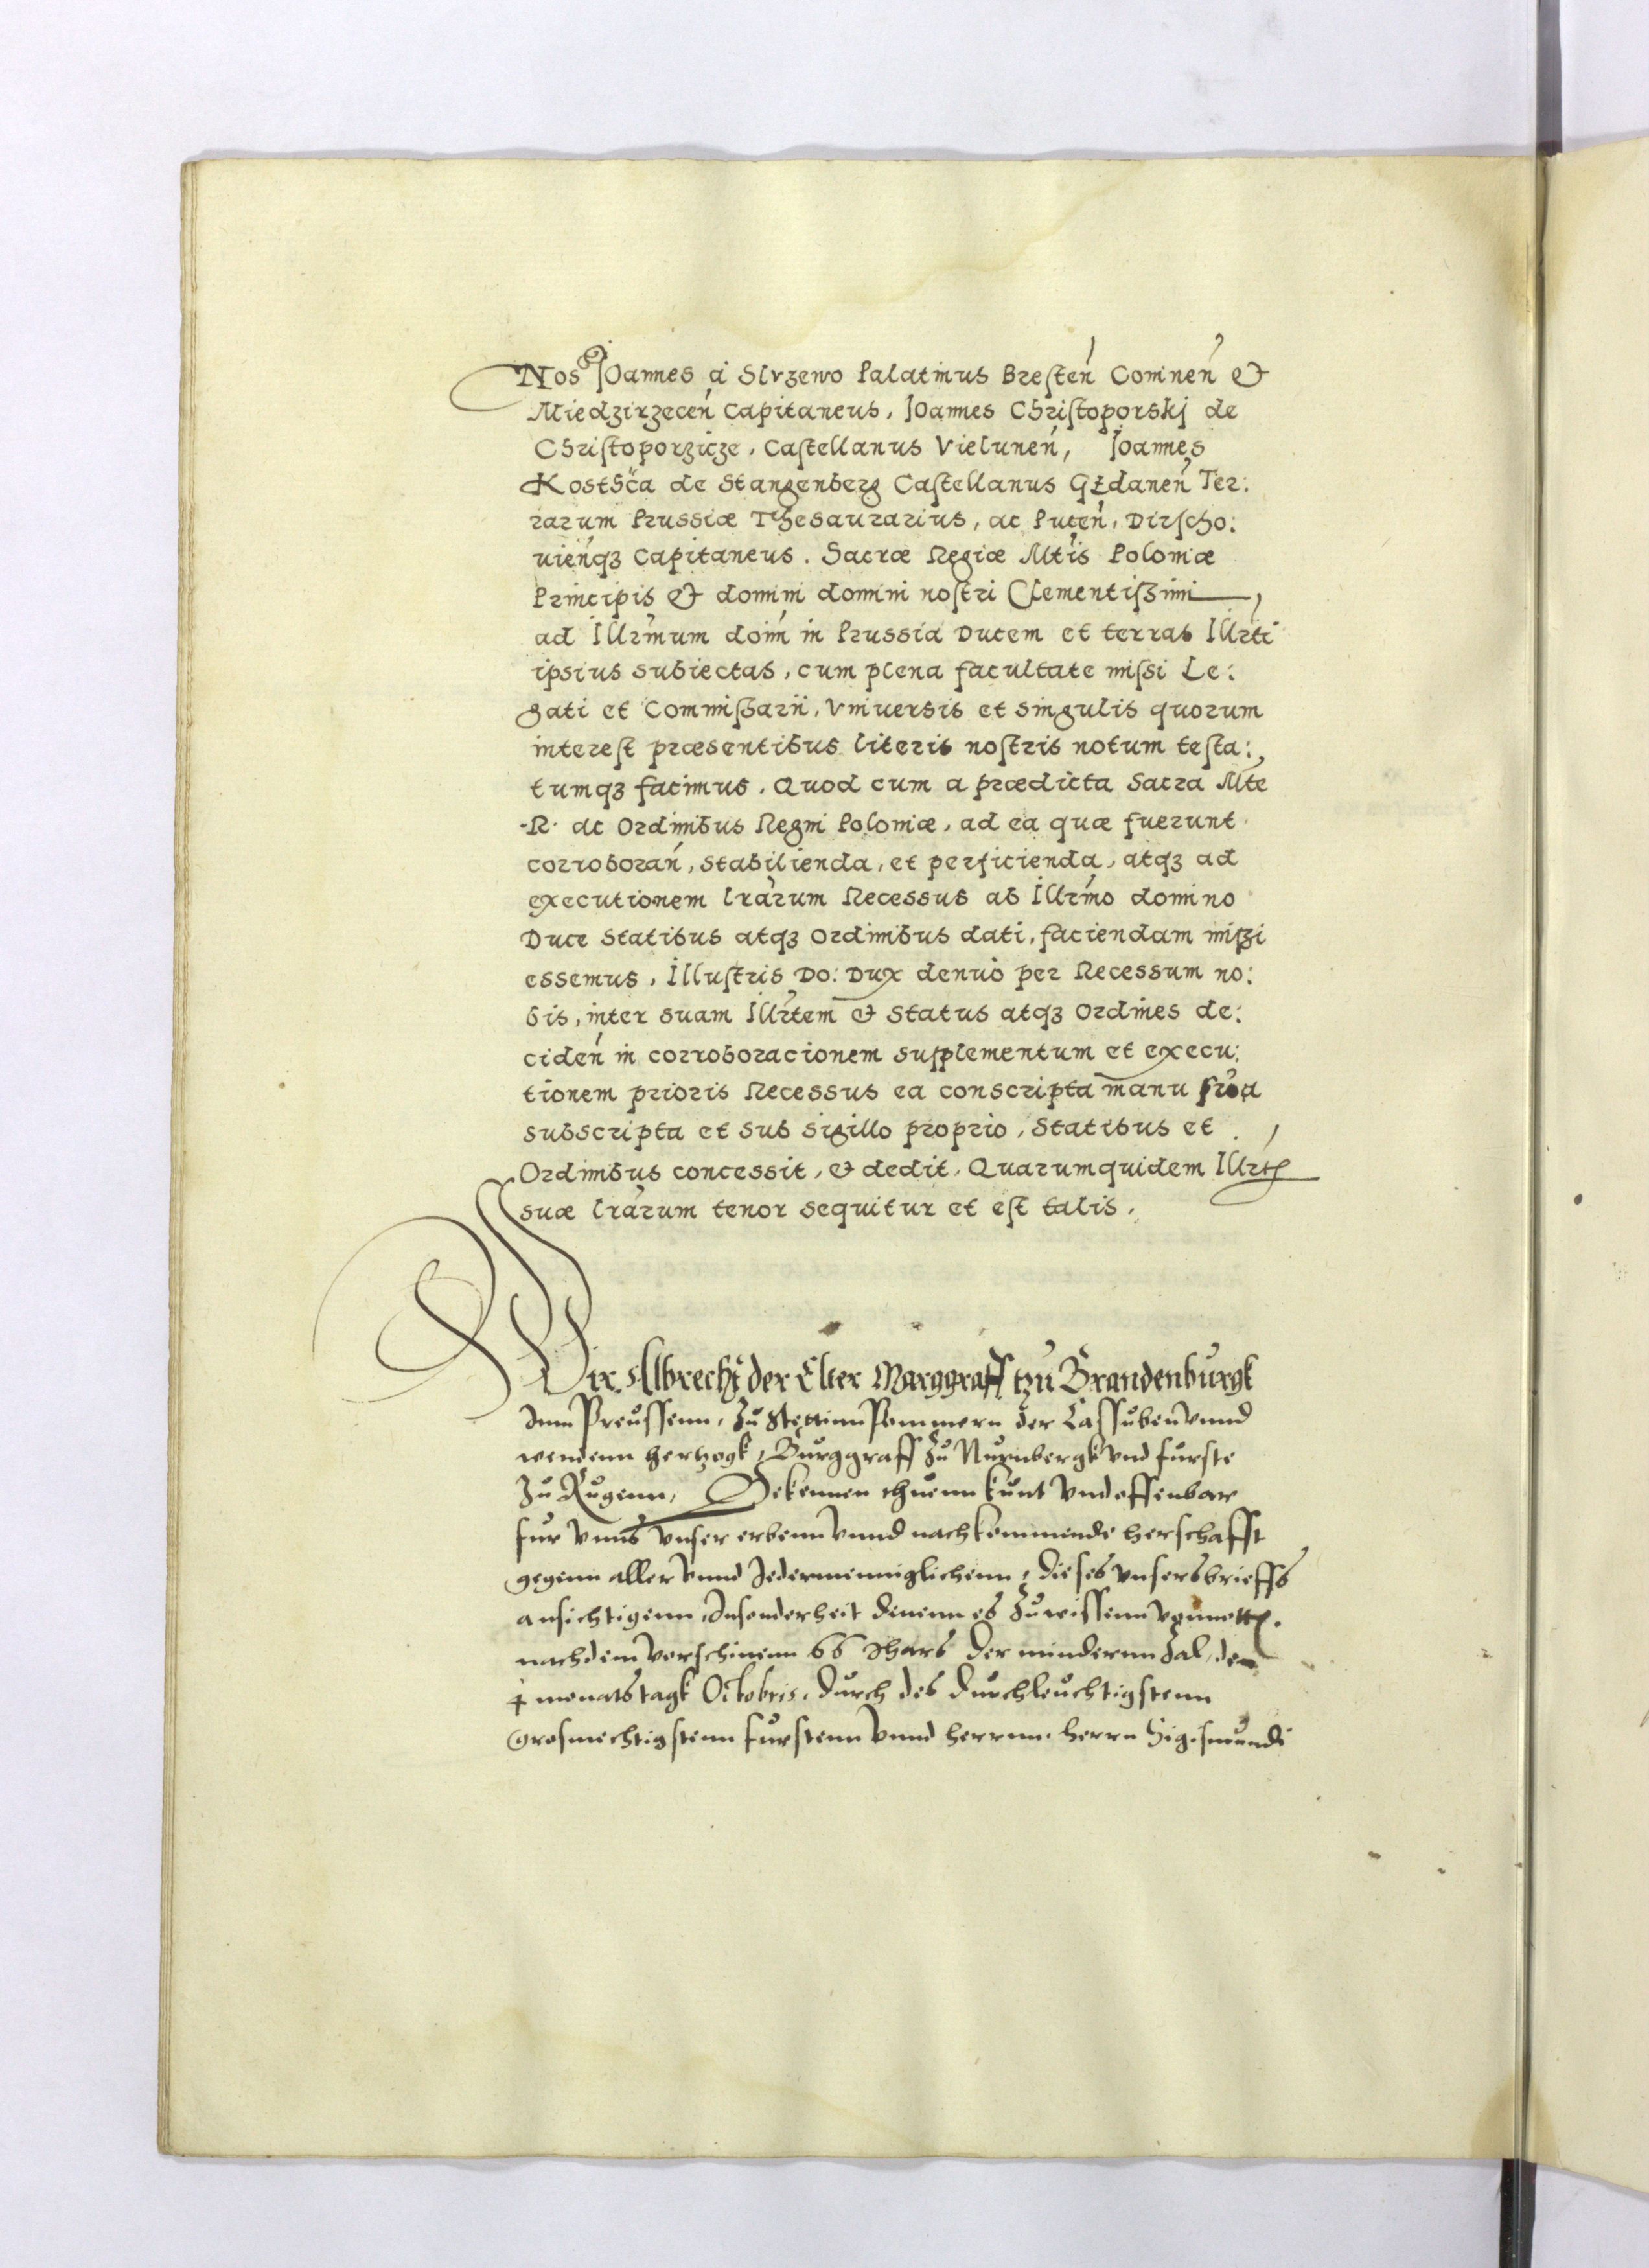 Nos Joannes à Slvzewo Palatinus Bresteń Comneń &
Miedzirzeceń Capitaneus, Joannes Christoporskj de
Christoporzicze, Castellanus Vieluneń, Joannes
KostSca de Stangenberg Castellanus Gedaneń Ter:
rarum Prussiæ Thesaurarius, ac Puceń, Dirscho:
uieńqz Capitaneus. Sacræ Regiæ Mtis Poloniæ
Principis & domini domini nostri Clementissimi
ad Illrmum doim in Prussia Ducem et terras Illrti
ipsius subiectas, cum plena facultate missi Le:
gati et Commissarii, Vniuersis et singulis quorum
interest præsentibus literis nostris notum testa:
tumqz facimus. Quod cum a prædicta Sacra Mte
·R· ac Ordinibus Regni Poloniæ, ad ea quæ fuerunt
corroborań, stabilienda, et perficienda, atqz ad
executionem lrarum Recessus ab Illrmo domino
Duce Statibus atqz Ordinibus dati, faciendam missi
essemus, Illustris Do: Dux denuò per Recessum no:
bis, inter suam Illrtem & Status atqz Ordines de:
cideń in corroboracionem supplementum et execu:
tionem prioris Recessus ea conscripta manu sua
subscripta et sub sigillo proprio, Statibus et
Ordinibus concessit, & dedit, Quarumquidem Illrtis
suæ lrarum tenor sequitur et est talis.
Wir Albrecht der Elter Marggraff tzu Brandenburgk
Inn Preussenn, zu Stettinn Pommern der Cassuben vnnd
wendenn hertzogk, Burggraff zu Nurnbergk vnd furste
zu Rugenn, Bekennen thuenn kunt vnd offenbar
fur vnns vnser erbenn vnnd nachkommende herschafft
gegenn aller vnnd Jedermenniglichenn, dieses vnsers brieffs
ansichtigenn, Insonderheit denenn es zuwissenn vonnott.
nachdem verschinenn 66 Jhars der mindernn zal, den
4 monatstagk Octobris, durch des durchleuchtigstenn
Grosmechtigstenn furstenn vnnd herrnn, herrn Sigismundi